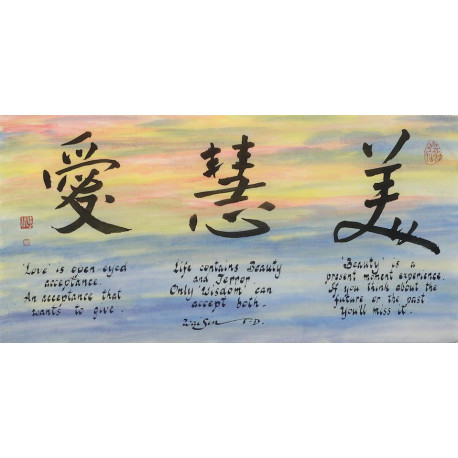 愛 慧 美
'Love' is open eyed
acceptance.
An acceptance that
wants to give.
Life contains Beauty
and Terror.
Only 'Wisdom' can
accept both.
'Beauty' is a
present moment experience.
If you think about the
future, or the past
You'll miss it.